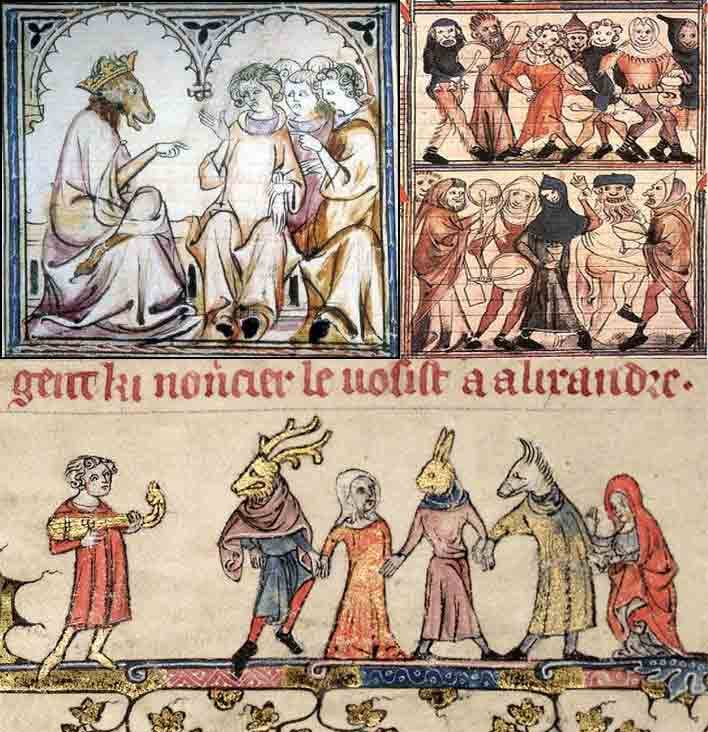 gent ki noncier le uosist a alixandre.